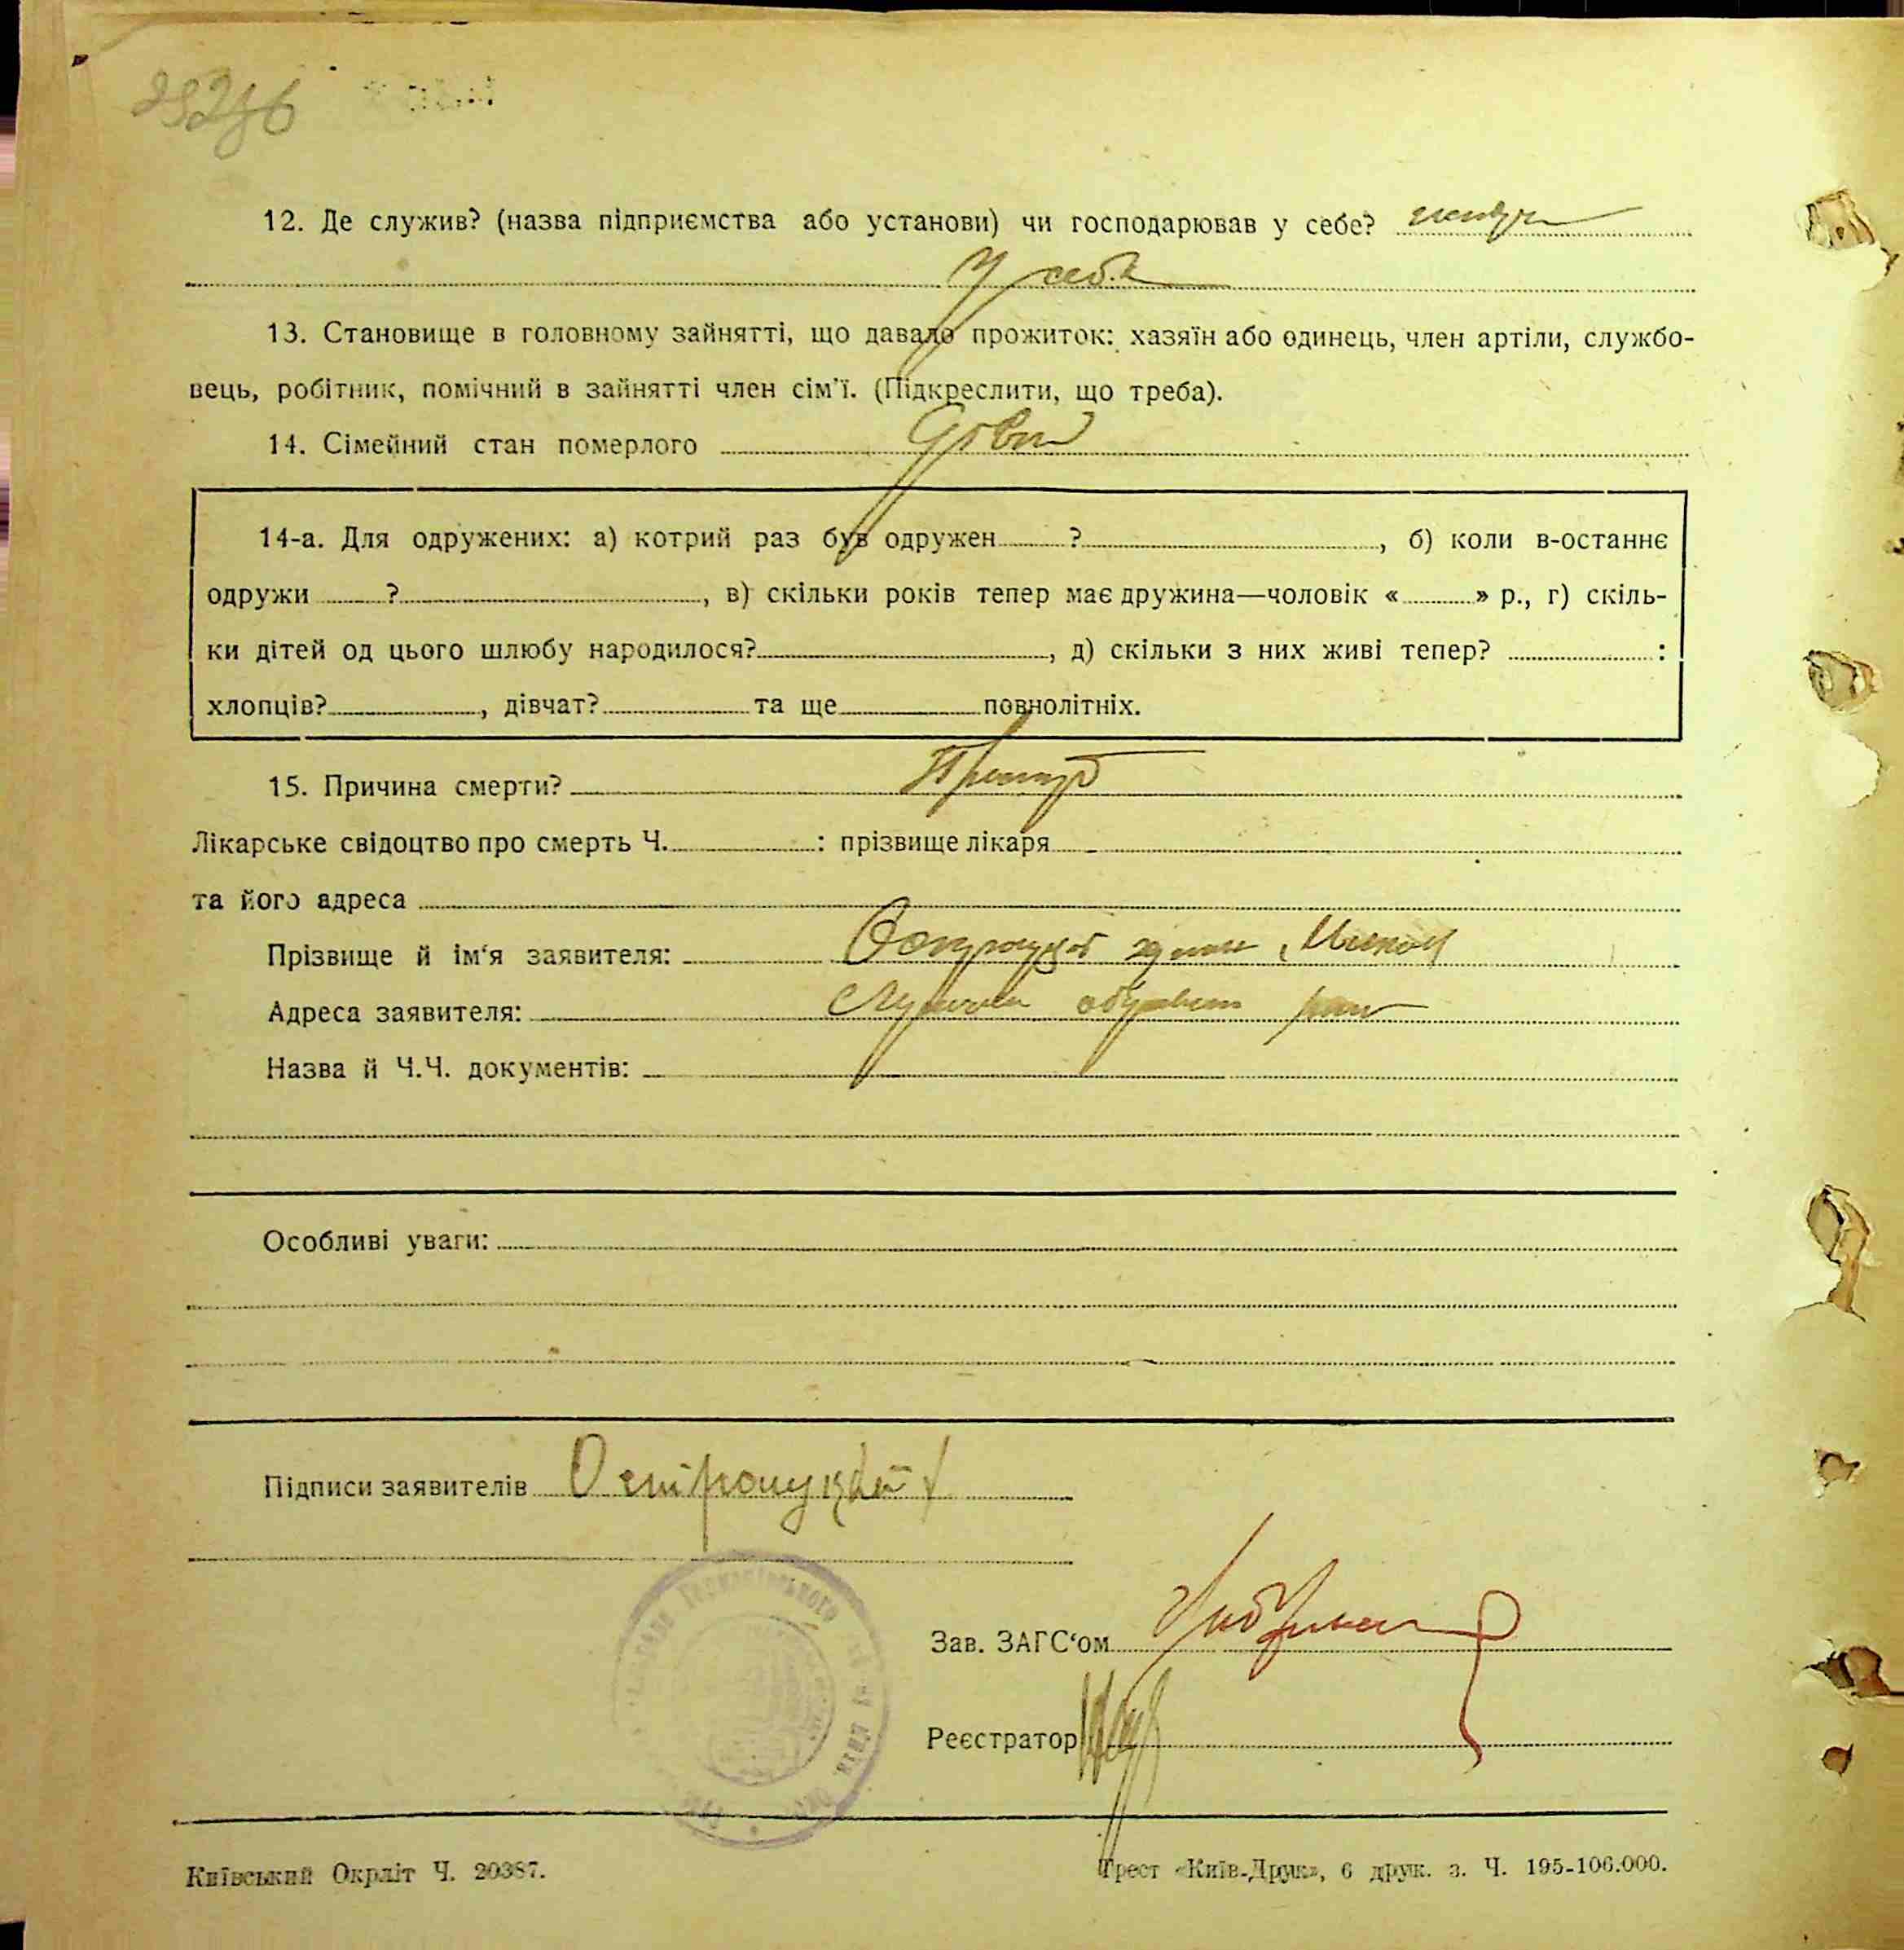 12. Де служив? (назва підприємства або установи) чи господарював у себе?
У себе
13. Становище в головному зайнятті, що давало прожиток: хазяїн або одинець, член артіли, службо-
вець, робітник, помічний в зайнятті член сім'ї. (Підкреслити, що треба).
14. Сімейний стан померлого
14-а. Для одружених: а) котрий раз був одружен ? , б) коли в-останнє
одружи ? , в) скільки років тепер має дружина—чоловік « » р., г) скіль-
ки дітей од цього шлюбу народилося? , д) скільки з них живі тепер? :
хлопців? , дівчат? та ще повнолітніх.
15. Причина смерти?
Лікарське свідоцтво про смерть Ч. : прізвище лікаря
та його адреса
Прізвище й ім'я заявителя:
Адреса заявителя:
Назва й Ч.Ч. документів:
Особливі уваги:
Підписи заявителів
Зав. ЗАГС'ом
Реєстратор
Київський Окрліт Ч. 20387.
Трест «Київ-Друк», 6 друк. з. Ч. 195-106.000.